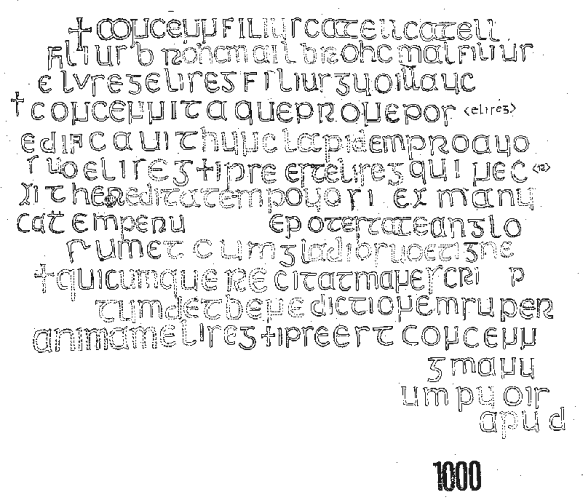 †concennfiliuscatellcatell
filiusbrohcmailbrohcmalfilius
eliseselires filiusguoillauc
†concennitaquepronepos <elires>
edificauithunclapidemproauo
suoelires+ipseestelires qui nec <->
xithereditatempouosi ex manu
catempenu epotestateanglo
rumet cumgladibsuoetigne
+quicumquerecitatmanescri p
tumdetbenedictionemsupen
animameliseg+ipseest concenn
gmann
umpuois
apud
1000